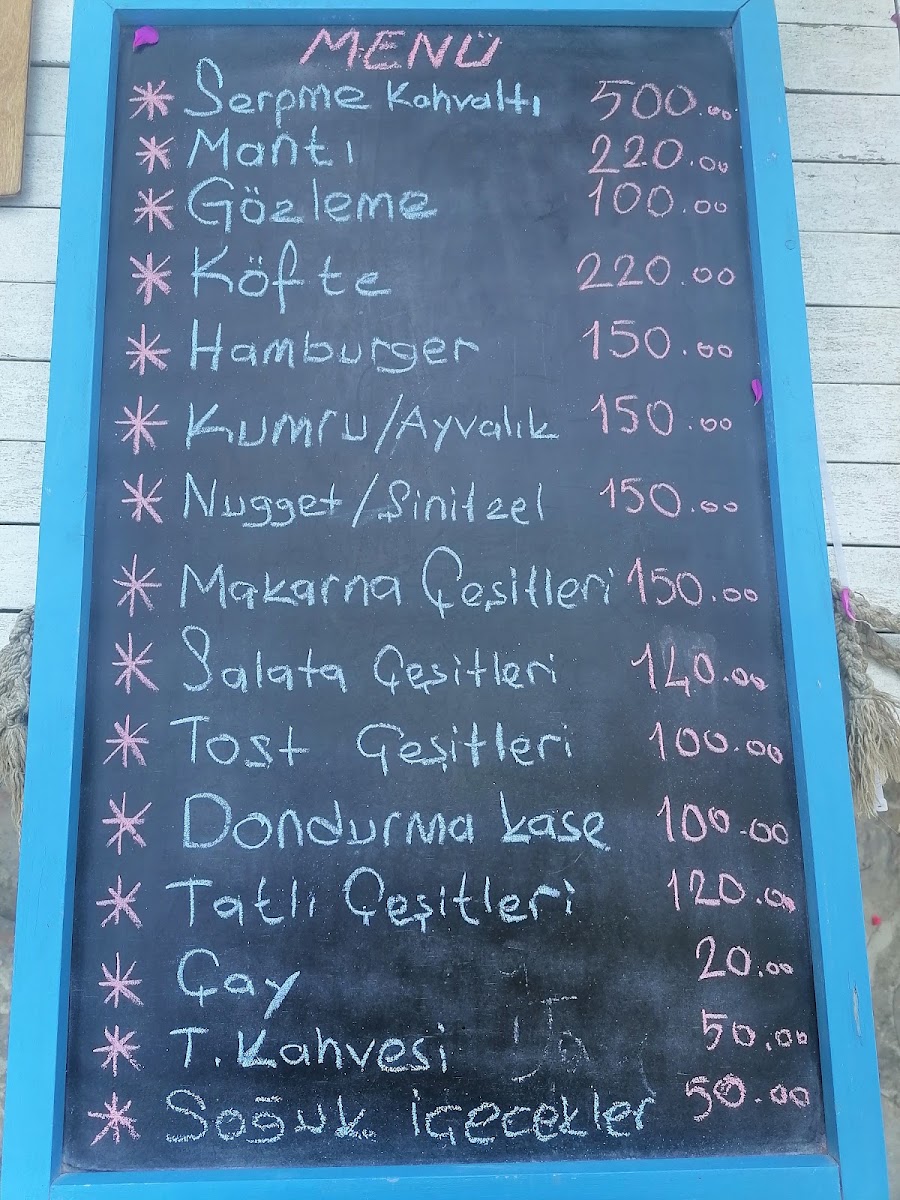 MENÜ
* Serpme Kahvaltı 500.00
* Mantı 220.00
* Gözleme 100.00
* Köfte 220.00
* Hamburger 150.00
* Kumru/Ayvalık 150.00
* Nugget/Şinitzel 150.00
* Makarna Çeşitleri 150.00
* Salata Çeşitleri 140.00
* Tost Çeşitleri 100.00
* Dondurma kase 100.00
* Tatlı Çeşitleri 120.00
* Çay 20.00
* T. Kahvesi 50.00
* Soğuk İçecekler 50.00